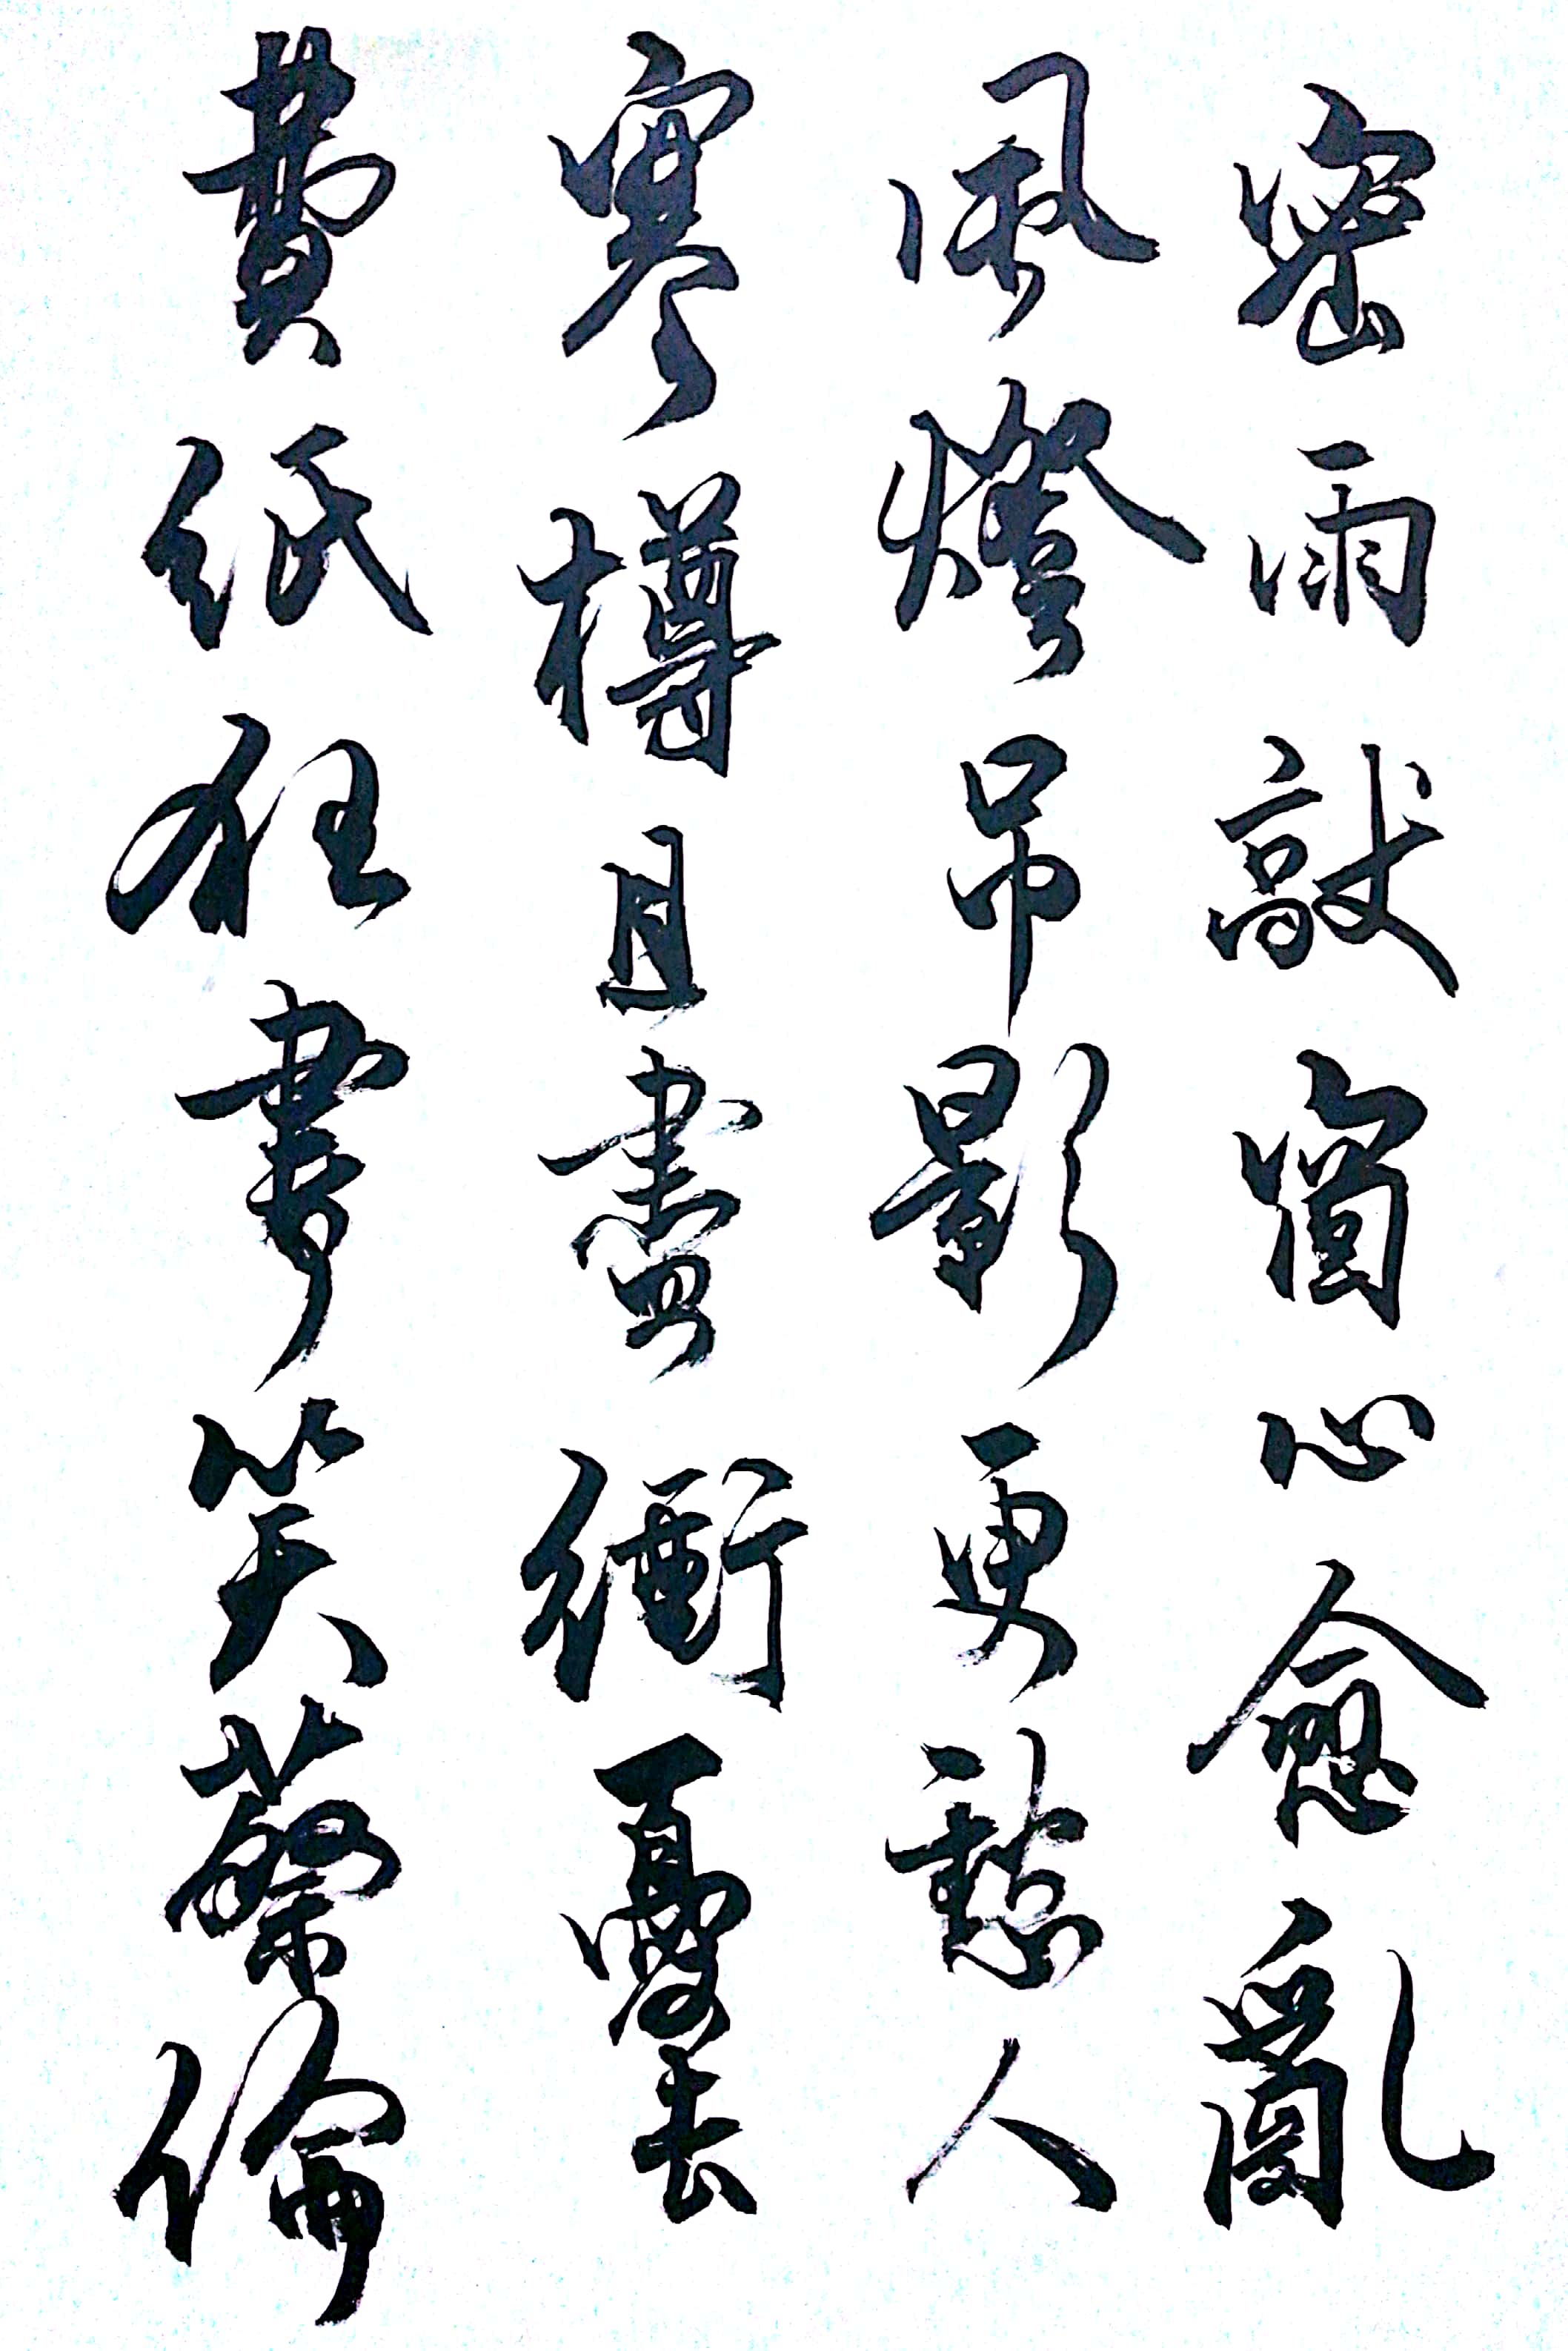 密雨敲窗心愈亂
風燈吊影更愁人
寒樽且盡衝憂去
費紙狂書笑蔡倫